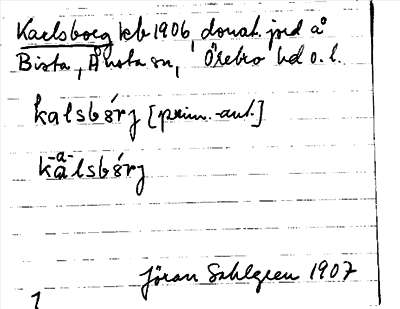 Karlsborg lcb 1906 donat. jord å
Bista, Ånsta sn, Örebro hd o. l.
kalsbórj [prim.-ant.]
-a-
kalsbórj
Jöran Sahlgren 1907
1